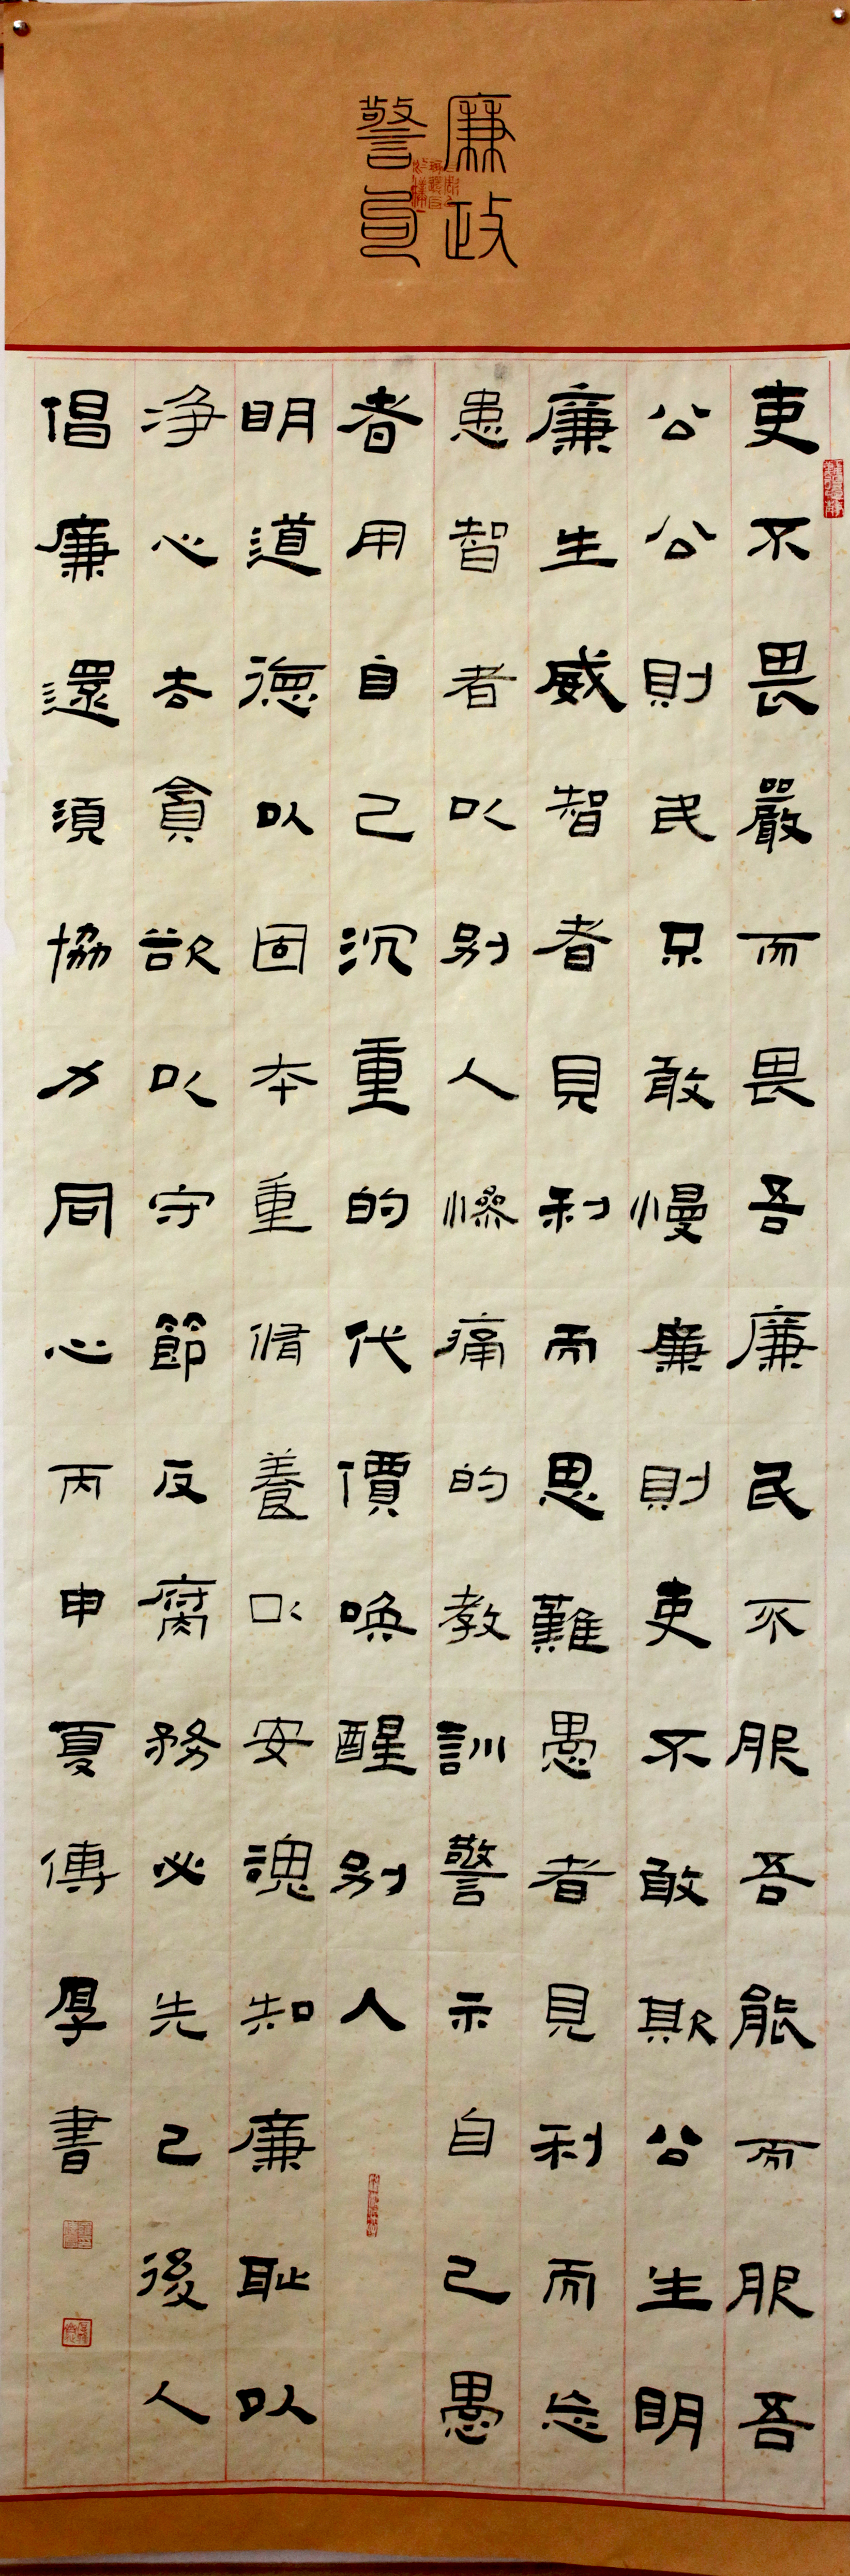 廉政
警句
吏不畏嚴而畏吾廉民不服吾能而服吾
公公則民只敢慢廉則吏不敢欺公生明
廉生威智者見利而思難愚者見利而忘
患智者以别人慘痛的教訓警示自己愚
者用自己沉重的代價唤醒别人
明道德以固本重脩養以安魂知廉耻以
净心去貪欲以守節反腐務必先己後人
倡廉還須協力同心丙申夏傅厚書